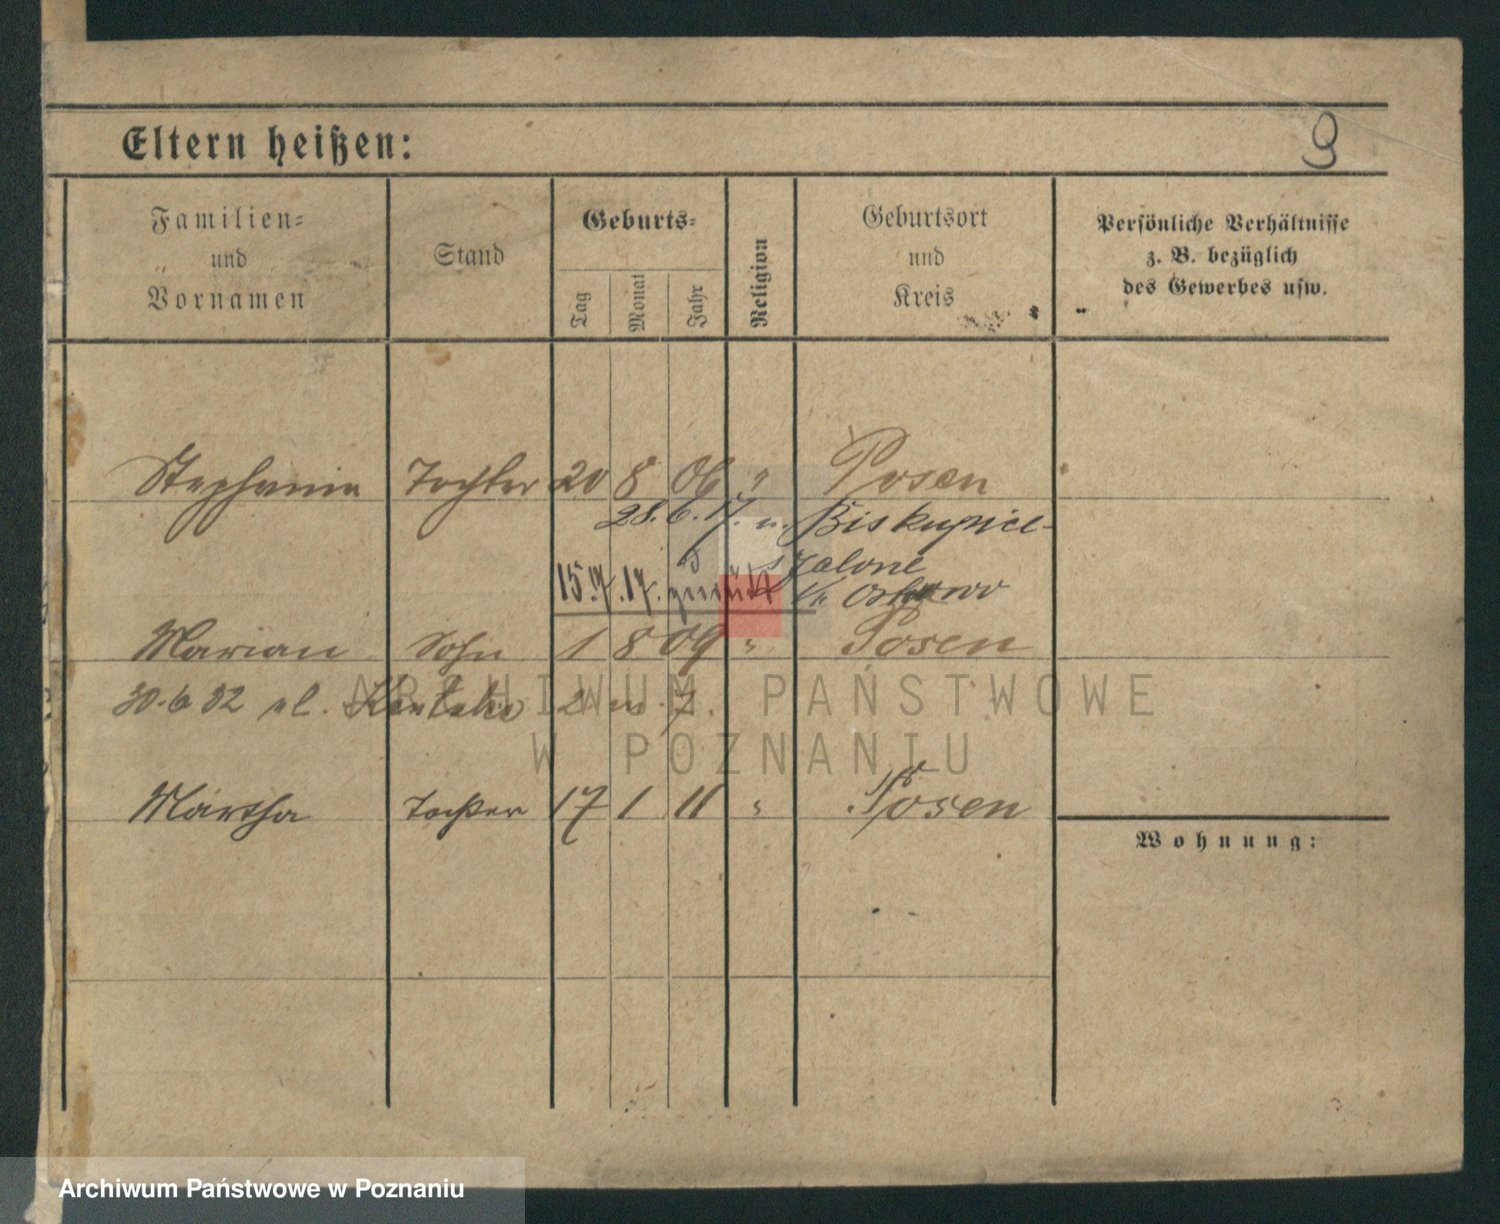 Eltern heißen:
9
Familien-
und
Vornamen
Stand
Geburts-
Tag
Monat
Jahr
Religion
Geburtsort
und
Kreis
Persönliche Verhältnisse
z. B. bezüglich
des Gewerbes usw.
Stephania Tochter 20 8 06 " Posen
28. 6. 17. n. Biskupice-
szalone
15.7.17. zurück Kr. Ostrowo
Marian Sohn 1 8 09 " Posen
30.6.32 ul. 2 m 7.
Martha Tochter 17 1 11 " Posen
Wohnung:
ARCHIWUM PAŃSTWOWE
W POZNANIU
Archiwum Państwowe w Poznaniu